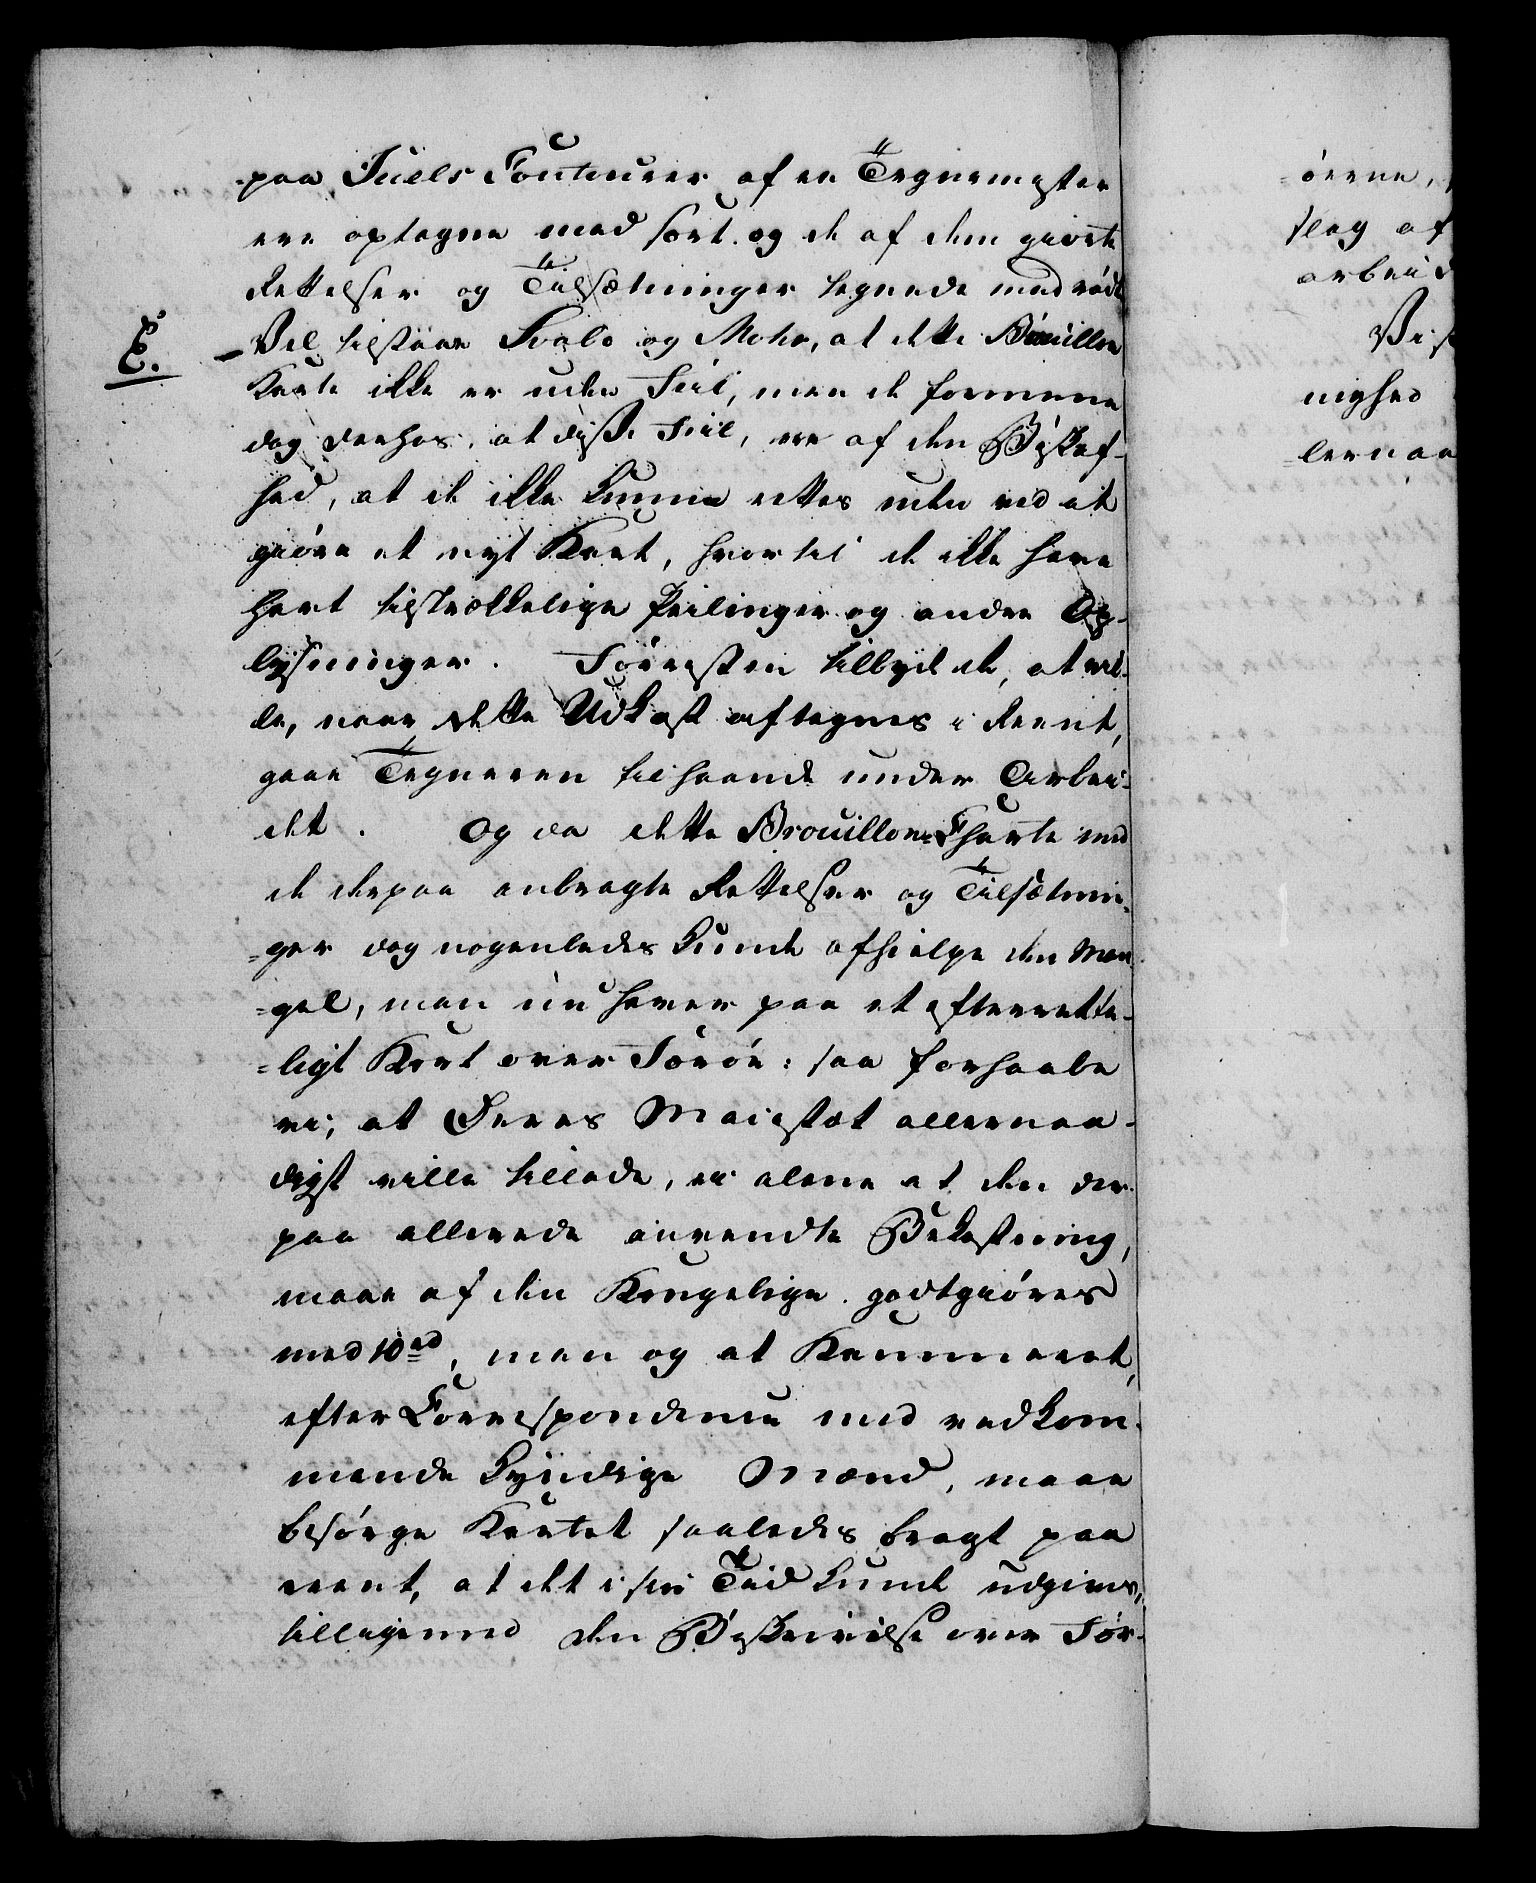 paa Juels Contourer af en Tegnemester
ere optegne med sort og de af dem giorte
Rettelser og Tilsætninger tegnede med rödt
E. Vel tilstaae Svabo og Mohr, at dette Brouillon
Karte ikke er uden Feil, men de formene
dog derhos, at disse Feil, ere af den Beskaf-
hed, at de ikke kunne rettes uden ved at
giöre et nyt Kort, hvortil de ikke have
havt tilstrækkelige Peilinger og andre Op-
lysninger. Forresten tilbyde de, at vil-
le, naar dette Udkast aftegnes i Reent,
gaae Tegneren tilhaande under Arbei-
det. Og da dette Brouillon-Charte med
de derpaa anbragte Rettelser og Tilsætnin-
=ger dog nogenledes kunde afhielpe den Man
=gel, man nu haver paa et efterrette-
=ligt Kort over Færöe: saa forhaabe
vi, at Deres Maiestæt allernaa-
digst ville tillade, ei alene at den der-
paa allerede anvendte Bekostning,
maae af den Kongelige godtgiöres
med 10 rd, men og at Kammeret,
efter Correspondence med vedkom-
mende kyndige Mænd, maae
besörge Kartet saaledes bragt paa
reent, at det i sin Tid kunde udgives,
tilligemed den Beskrivelse over Fær-
öerne,
slag af
arbeid
Vi
nighed
lernaa